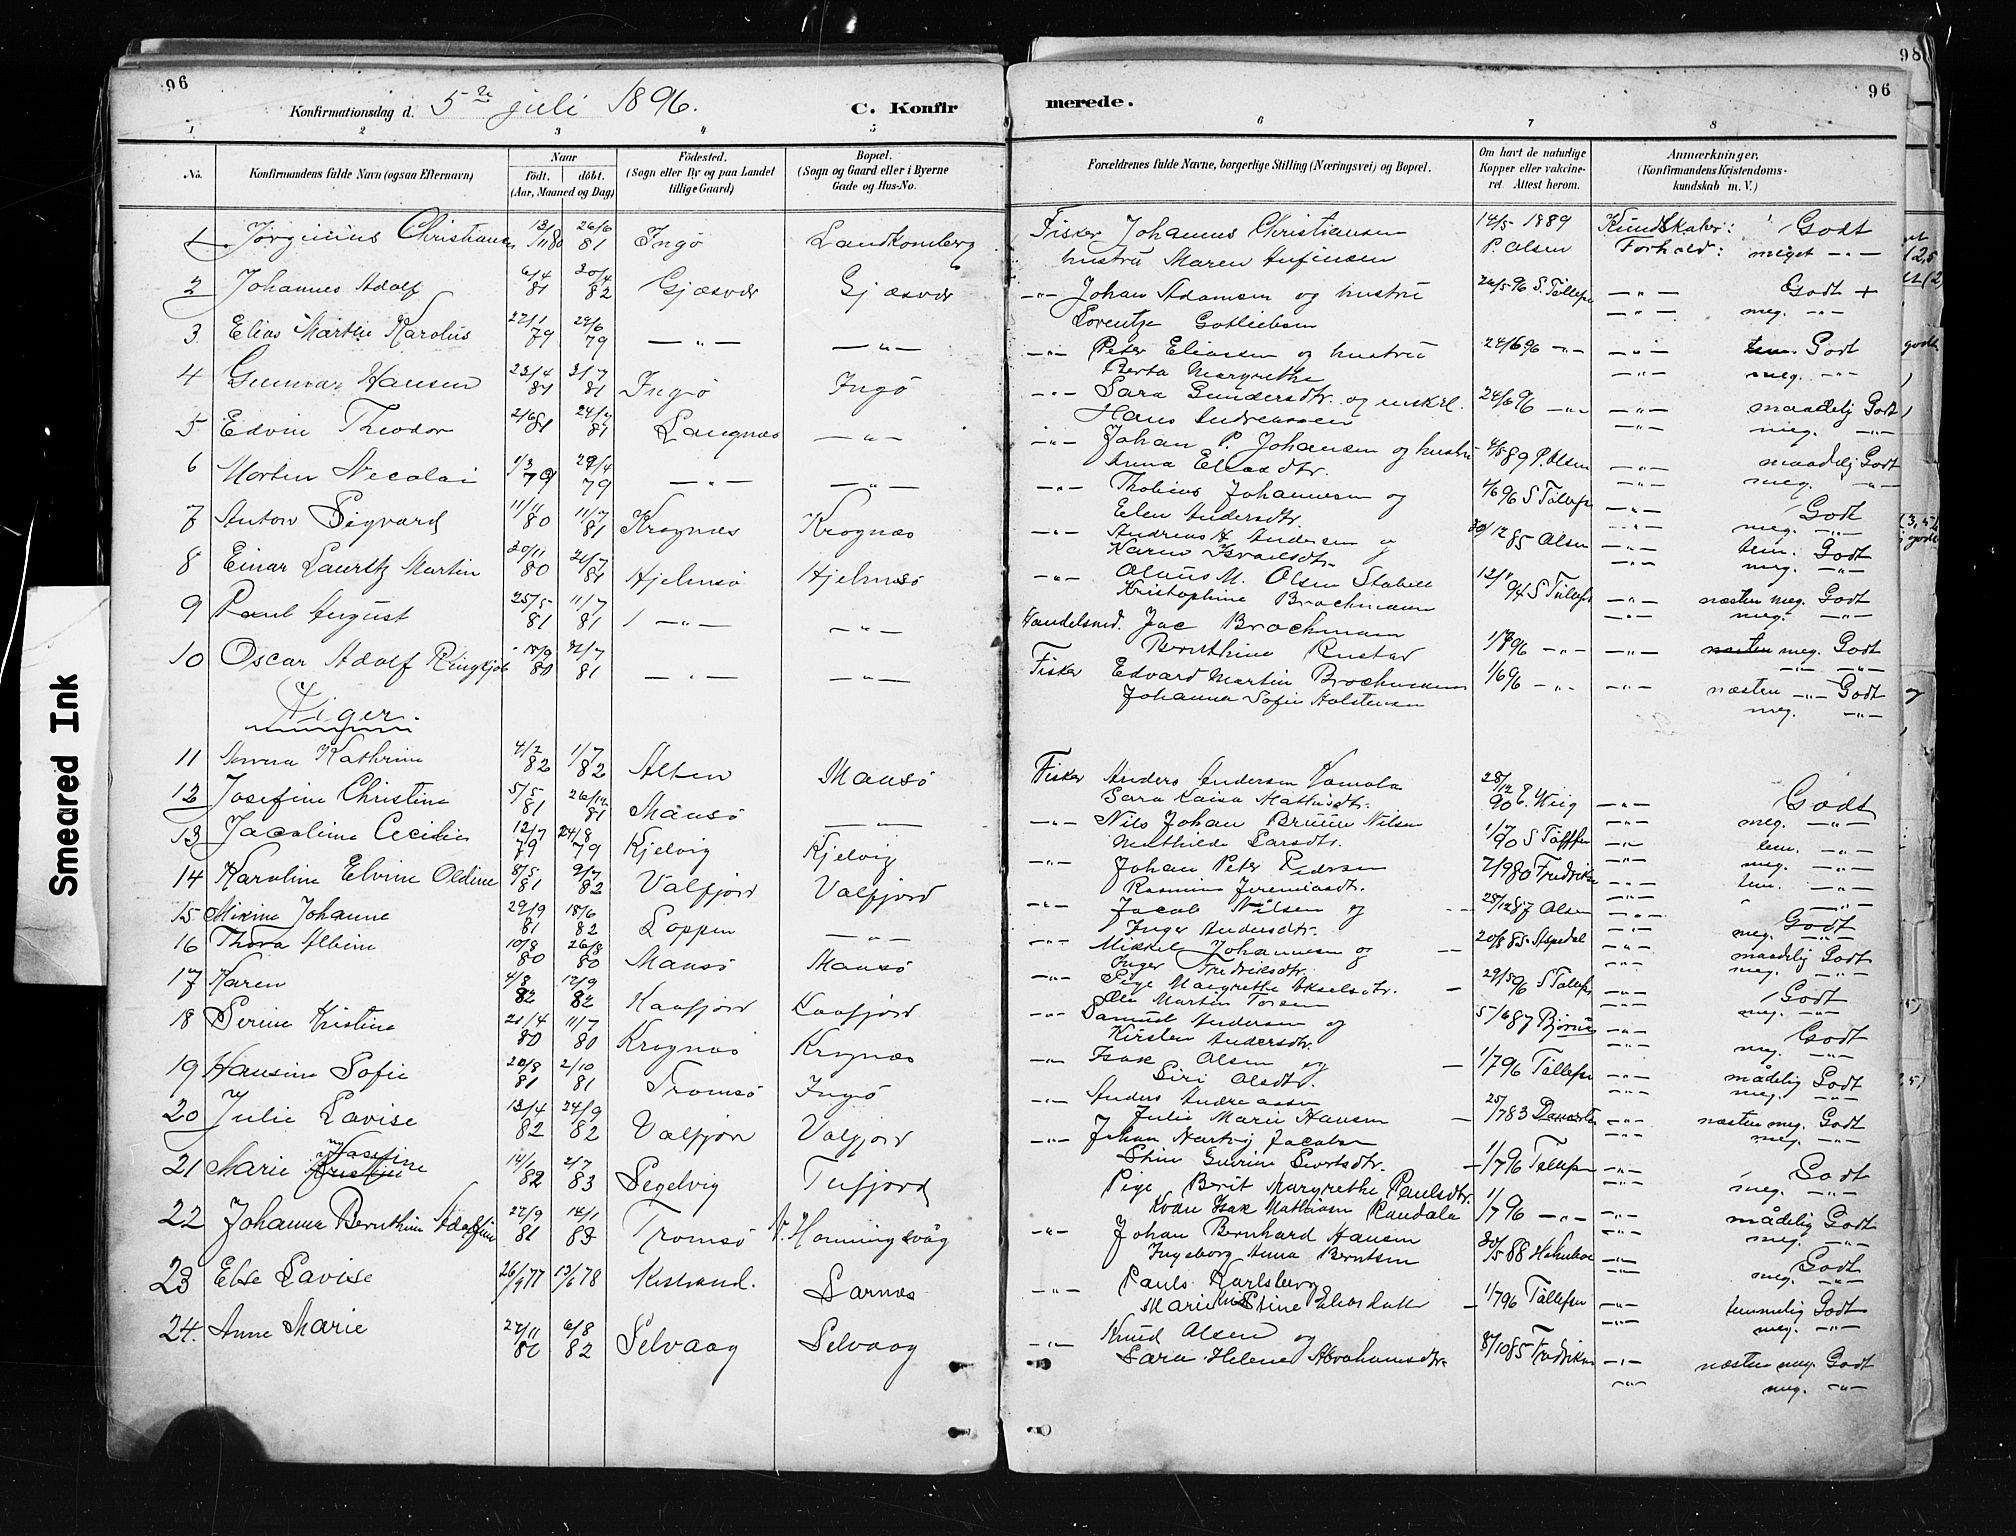 96
Konfirmationsdag d. 5te juli 1896. C. Konfir
1 2 3 4 5
No. Konfirmandens fulde Navn (ogsaa Efternavn) Naar født. døbt. (Aar, Maaned og Dag) Fødested. (Sogn eller By og paa Landet tillige Gaard) Bopæl. (Sogn og Gaard eller i Byerne Gade og Hus-No.
1 Jørginus Christiansen 13/11 80 26/6 81 Ingø
2 Johannes Adolf 6/4 81 20/4 82 Gjæsvær Gjæsvær
3 Elias Martin Karolus 22/1 79 29/6 79 —„— —„—
4 Gunnar Hansen 23/4 81 3/7 81 Ingø Ingø
5 Edvin Theodor 2/6 81 24/7 81 Langnæs —„—
6 Morten Necolai 1/3 79 29/4 79 —„— —„—
7 Anton Sigvard 11/11 80 11/7 81 Krognæs Krognæs
8 Einar Lauritz Martin 20/11 80 21/7 81 Hjelmsø Hjelmsø
9 Paul August 25/5 81 11/7 81 —„— —„—
10 Oscar Adolf 80 81 —„— —„—
Piger.
11 Anna Kathrine 4/2 82 1/7 82 Alten Maasø
12 Josefine Christine 5/5 81 26/12 81 Maasø —„—
13 Jacobine Cecilie 12/7 79 24/8 79 Kjelvig Kjelvig
14 Karoline Elvine Oldine 8/5 81 9/7 82 Valfjord Valfjord
15 Mixine Johanne 29/9 81 18/6 82 Loppen —„—
16 Thora Albine 10/8 80 26/8 80 Maasø Maasø
17 Karen 4/8 82 12/9 82 Kaafjord Kaafjord
18 Serine Kristine 21/4 80 11/7 80 Krognæs Krognæs
19 Hansine Sofie 20/8 81 2/10 81 Tromsø Ingø
20 Julie Lavise 13/4 82 24/9 82 Valfjord Valfjord
21 Marie Josefine 14/1 82 2/7 83 Segelvig Tufjord
22 Johanna Bernthine Adolfine 27/9 81 14/1 83 Tromsø N. Honningsvåg
23 Else Lavise 26/9 77 13/6 78 Kistrand. Sarnæs
24. Anne Marie 27/11 6/8 82 Selvaag Selvaag
96
merede.
6 7 8
Forældrenes fulde Navne, borgerlige Stilling (Næringsvei) og Bopæl. Om havt de naturlige Kopper eller vaccineret. Attest herom. Anmærkninger. (Konfirmandens Kristendomskundskab m. V.)
Fisker Johannes Christiansen 14/5 1889 Kundskaber: Godt
hustru Maren P. Olsen Forhold: meget —„—
—„— Johan Adamsen og hustru 26/5 96 S. Tollefsen —„— Godt +
Lorentze Gotliebsen —„— meg. —„—
—„— Peter Eliassen og hustru 24/6 96 —„— —„— Godt
Berta Margrethe —„— meg. —„—
—„— Sara Gundersdtr. og 24/6 96 —„— —„— maadelig Godt
Hans Andreassen —„— meg. —„—
—„— Johan P. Johansen og hustru 4/5 89 P. Olsen —„— maadelig Godt
Anna Eliasdtr. —„— meg. —„—
—„— Thobius Johannesen og 4/6 96 S Tollefsen —„— Godt
Elen Andersdtr. —„— meg. —„—
—„— Andreas A Andersen og 30/12 85 Olsen —„— tem. Godt
Karen Israelsdtr. —„— meg. —„—
—„— Olaus M. Olsen Stabell 94 S Tollefsen —„— næsten meg. Godt
Kristophine Brochmann —„— meg. —„—
Handelsmd. Jac Brochmann 96 —„— —„— næsten meg. Godt
Bernthine Rustad —„— —„—
Fisker Edvard Martin Brochmann 1/6 96 —„— —„— næsten —„— Godt
Johanna Sofie Holstensen meg. —„—
Fisker Anders Andersen 28/12 90 E. Wiig —„— Godt
Sara Kaisa Mathisdtr. —„— meg. —„—
—„— Nils Johan Bruun Nilsen 1/7 90 S —„— tem. —„—
Mathilde Larsdtr. —„— meg. —„—
—„— Johan Peter Pedersen 7/9 80 Fredriksen —„— tem. —„—
Rasmine Jeremiasdtr. —„—
—„— Jacob Nilsen og 28/12 87 Olsen —„— Godt
Inger Andersdtr. —„— meg. —„—
—„— Mikkel Johannesen og 20/8 85 —„— maadelig Godt
Inger Fredriksdtr. —„— meg. —„—
—„— Pige Margrethe Akselsdtr. 29/5 96 S Tollefsen —„— Godt
Ole Martin —„— meg. —„—
—„— Samuel Andersen og 5/6 87 —„— Godt
Kirsten Andersdtr. —„— meg. —„—
—„— Isak Olsen og 1/7 96 Tollefsen —„— mådelig Godt
Siri Olsdtr. —„— meg. —„—
—„— Anders Andreassen 25/7 83 —„— næsten meg. Godt
Julie Marie Hansen —„— meg. —„—
—„— Johan Hartvig Jacobsen 1/7 96 Tollefsen —„— Godt
—„— meg. —„—
Pige Berit Margrethe Paulsdtr. 1/7 96 —„— —„— mådelig Godt
Kvæn Isak Mathisen —„— meg. —„—
—„— Johan Bernhard Hansen 30/5 88 —„— Godt
Ingeborg Anna Berntsen —„— meg. —„—
—„— Paul Karlsberg 1/7 96 Tollefsen —„— temmelig Godt
Marie Stine —„— meg. —„—
—„— Knud Olsen og 8/10 85 Fredriksen —„— næsten meg. Godt
Sara Helene Abrahamsdtr. —„— meg. —„—
98
Smeared Ink